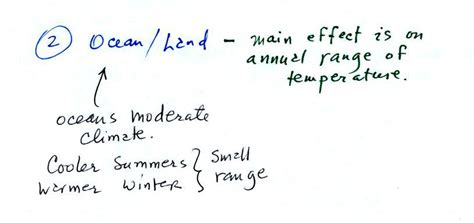 2 Ocean/Land - main effect is on
annual range of
temperature.
oceans moderate
climate.
Cooler Summers } Small
Warmer winter } range